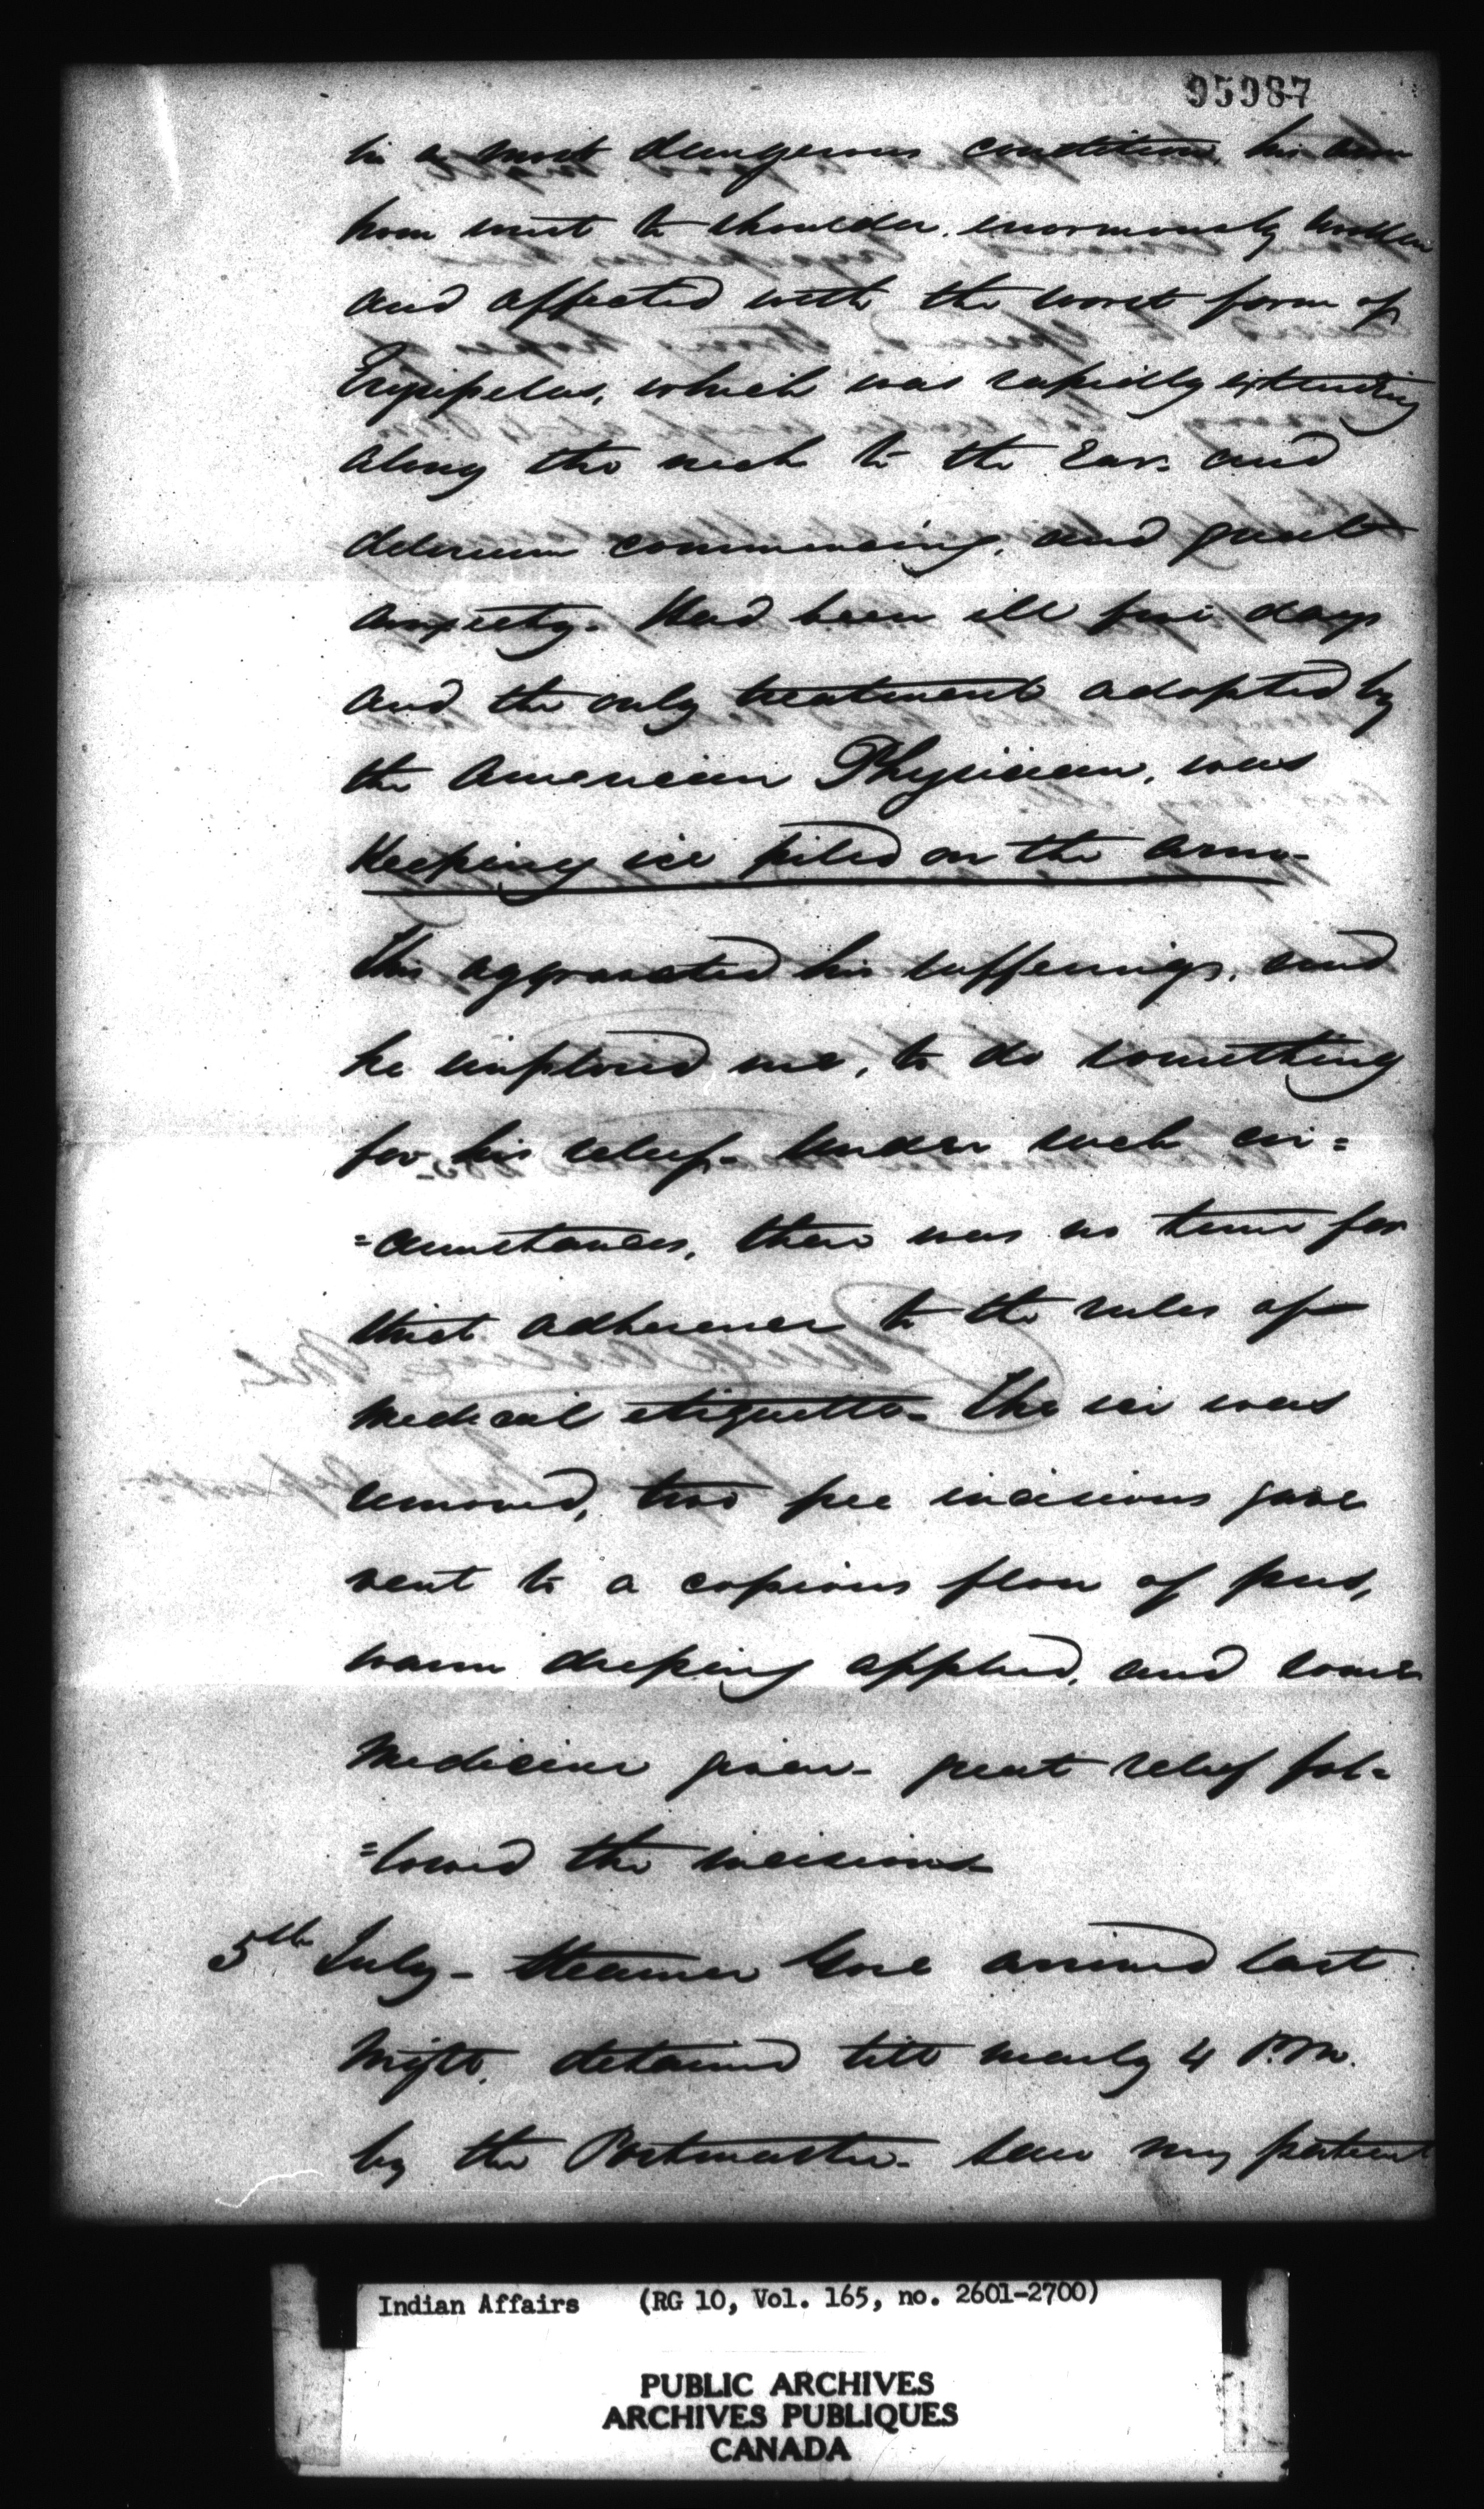 95987
in a most dangerous condition, his arm
from wrist to shoulder enormously swollen
and affected with the worst form of
Erysipelas, which was rapidly extending
along the neck to the Ear. and
delerium commencing, and great
anxiety. Had been ill five days
and the only treatment adopted by
the American Physician, was
Keeping ice piled on the arm.
This aggravated his sufferings, and
he implored me, to do something
for his relief. Under such cir=
=cumstances, there was no time for
strict adherence to the rules of
Medical etiquette. The ice was
removed, two free incisions gave
vent to a copious flow of pus,
warm dressing applied, and some
Medicine given. great relief fol=
=lowed the incisions
5th July - Steamer Gore arrived last
Night, detained till nearly 4 P.M.
by the Postmaster. Saw my patient
Indian Affairs (RG 10, Vol. 165, no. 2601-2700)
PUBLIC ARCHIVES
ARCHIVES PUBLIQUES
CANADA